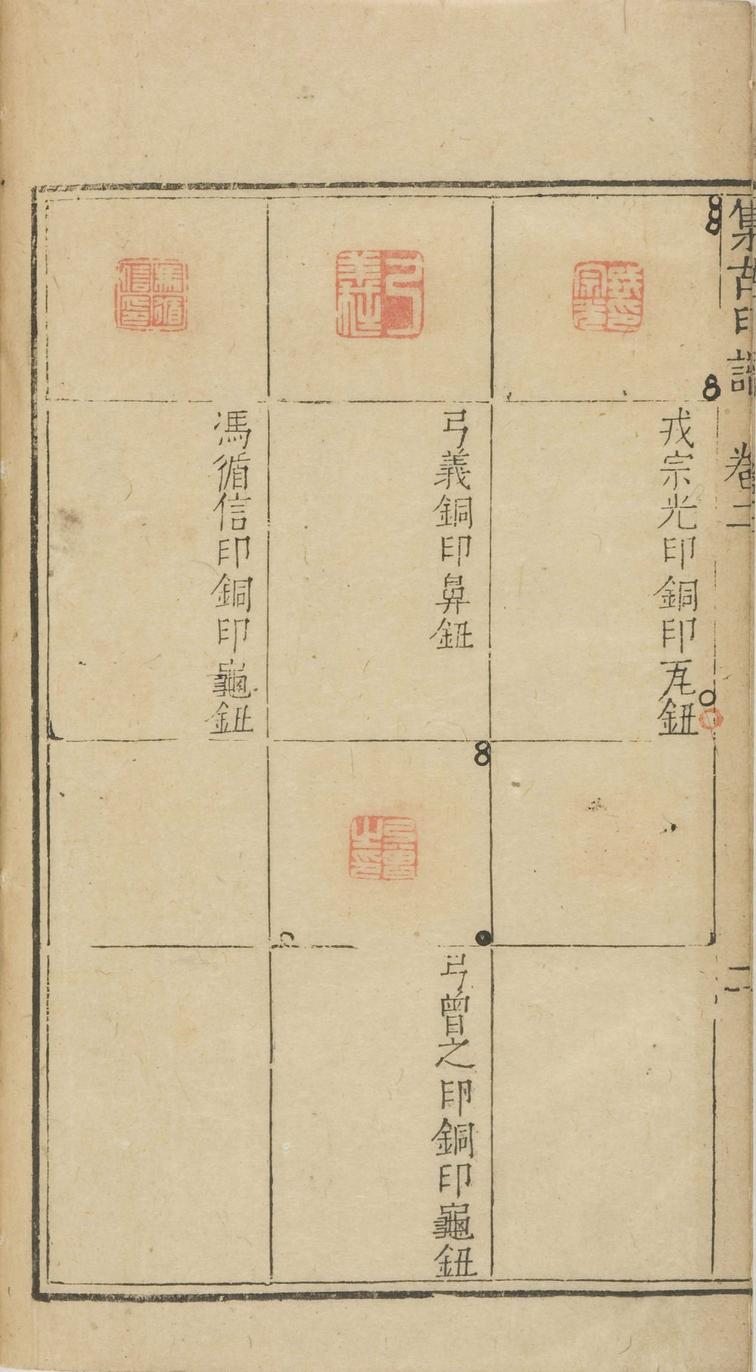 集古印譜 卷二 二
戎宗光印銅印瓦鈕
弓義銅印鼻鈕
弓曾之印銅印龜鈕
馮循信印銅印龜鈕